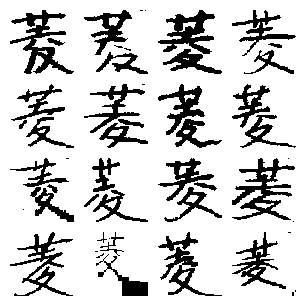 菱菱菱菱
菱菱菱菱
菱菱菱菱
菱菱菱菱